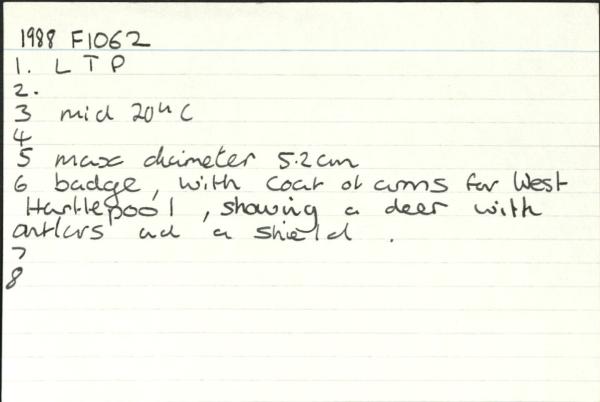 1988 F1062
1. L T P
2.
3 mid 20th C
4
5 max diameter 5.2cm
6 badge, with coat of arms for West
Hartlepool, showing a deer with
antlers and a shield.
7
8